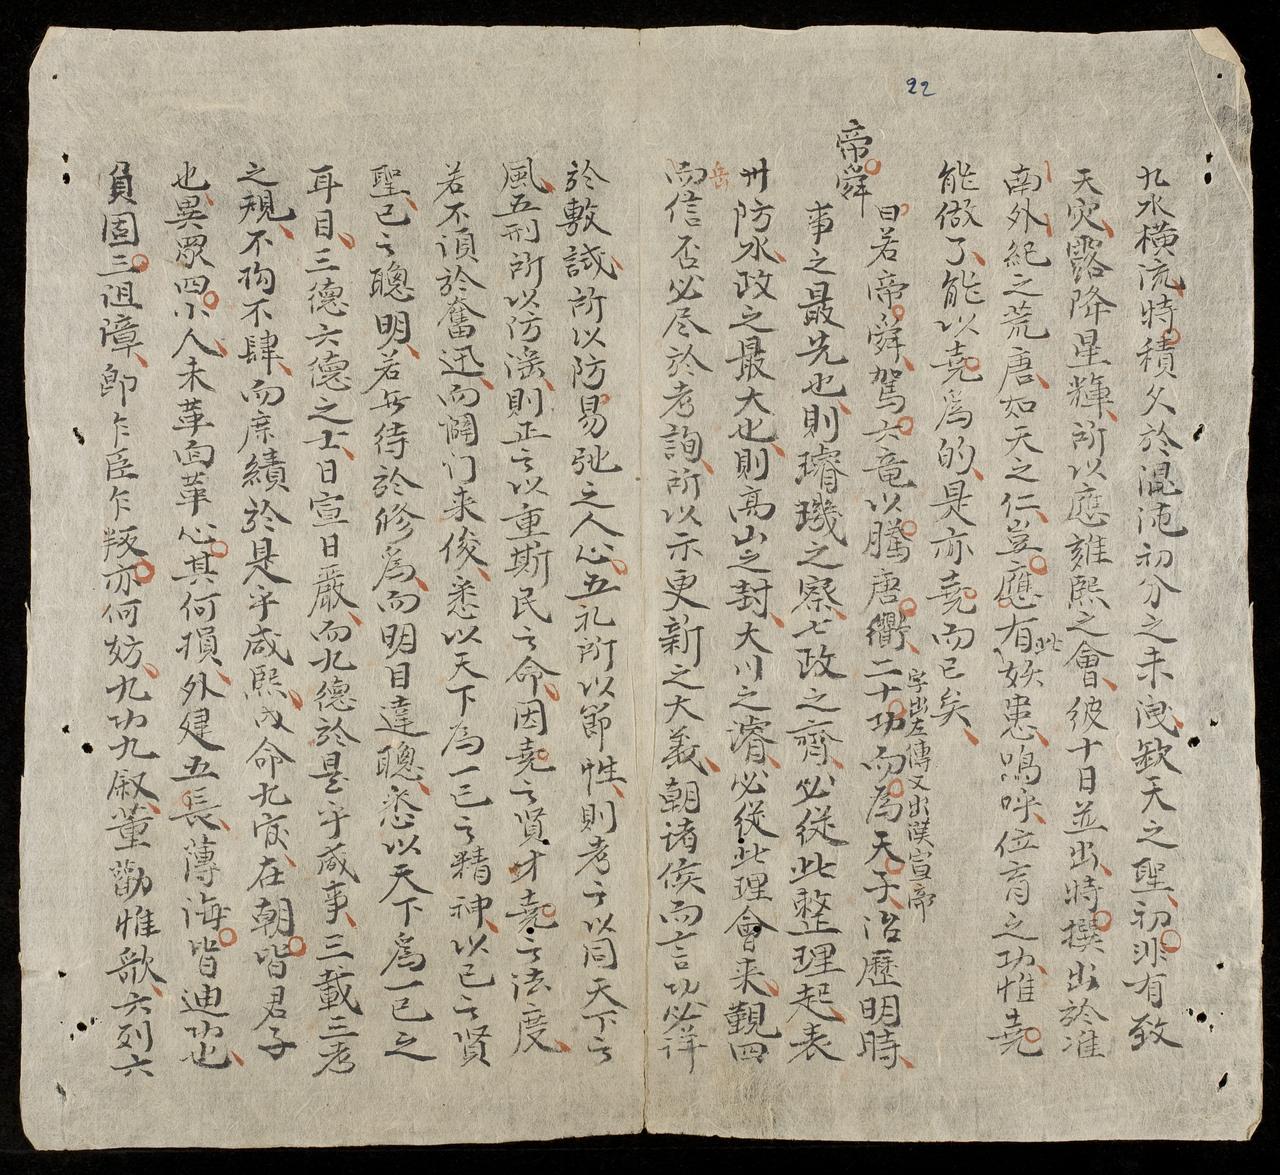 22
九水橫流時積久於混沌初分之未洩欽天之聖初非有致
天灾露降星輝所以應雍熙之會彼十日並出時撰出於淮
南外紀之荒唐如天之仁豈應有此妖患嗚呼位育之功惟堯
能做了能以堯爲的是亦堯而已矣
帝舜
曰若帝舜駕六竜以騰唐衢二十功而爲天子治歷明時
字出左傳又出漢宣帝
事之最先也則璿璣之察七政之齊必従此整理起表
卅防水政之最大也則高山之封大川之濬必従此理會来覲四
岳
而信否必尽於考詢所以示更新之大義朝诸侯而言功必详
於敷諴所以防易弛之人心五礼所以節性則考之以同天下之
風五刑所以防淫則正之以重斯民之命因堯之賢才堯之法度
若不須於奮迅而闢门来俊悉以天下為一己之精神以己之賢
聖己之聰明若無待於修為而明目達聰悉以天下爲一己之
耳目三德六德之士日宣日嚴而九德於是乎咸事三載三考
之規不拘不肆而庶績於是乎咸熙成命九官在朝皆君子
也異眾四小人未革面革心其何損外建五長薄海皆迪功也
負固三徂障即乍臣乍叛亦何妨九功九叙董勸惟歌六列六